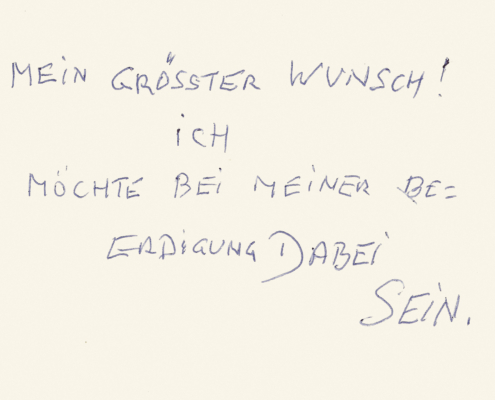 MEiN GRÖSSTER WUNSCH!
iCH
MÖCHTE BEi MEiNER BE=
ERDiGUNG DABEi
SEiN.